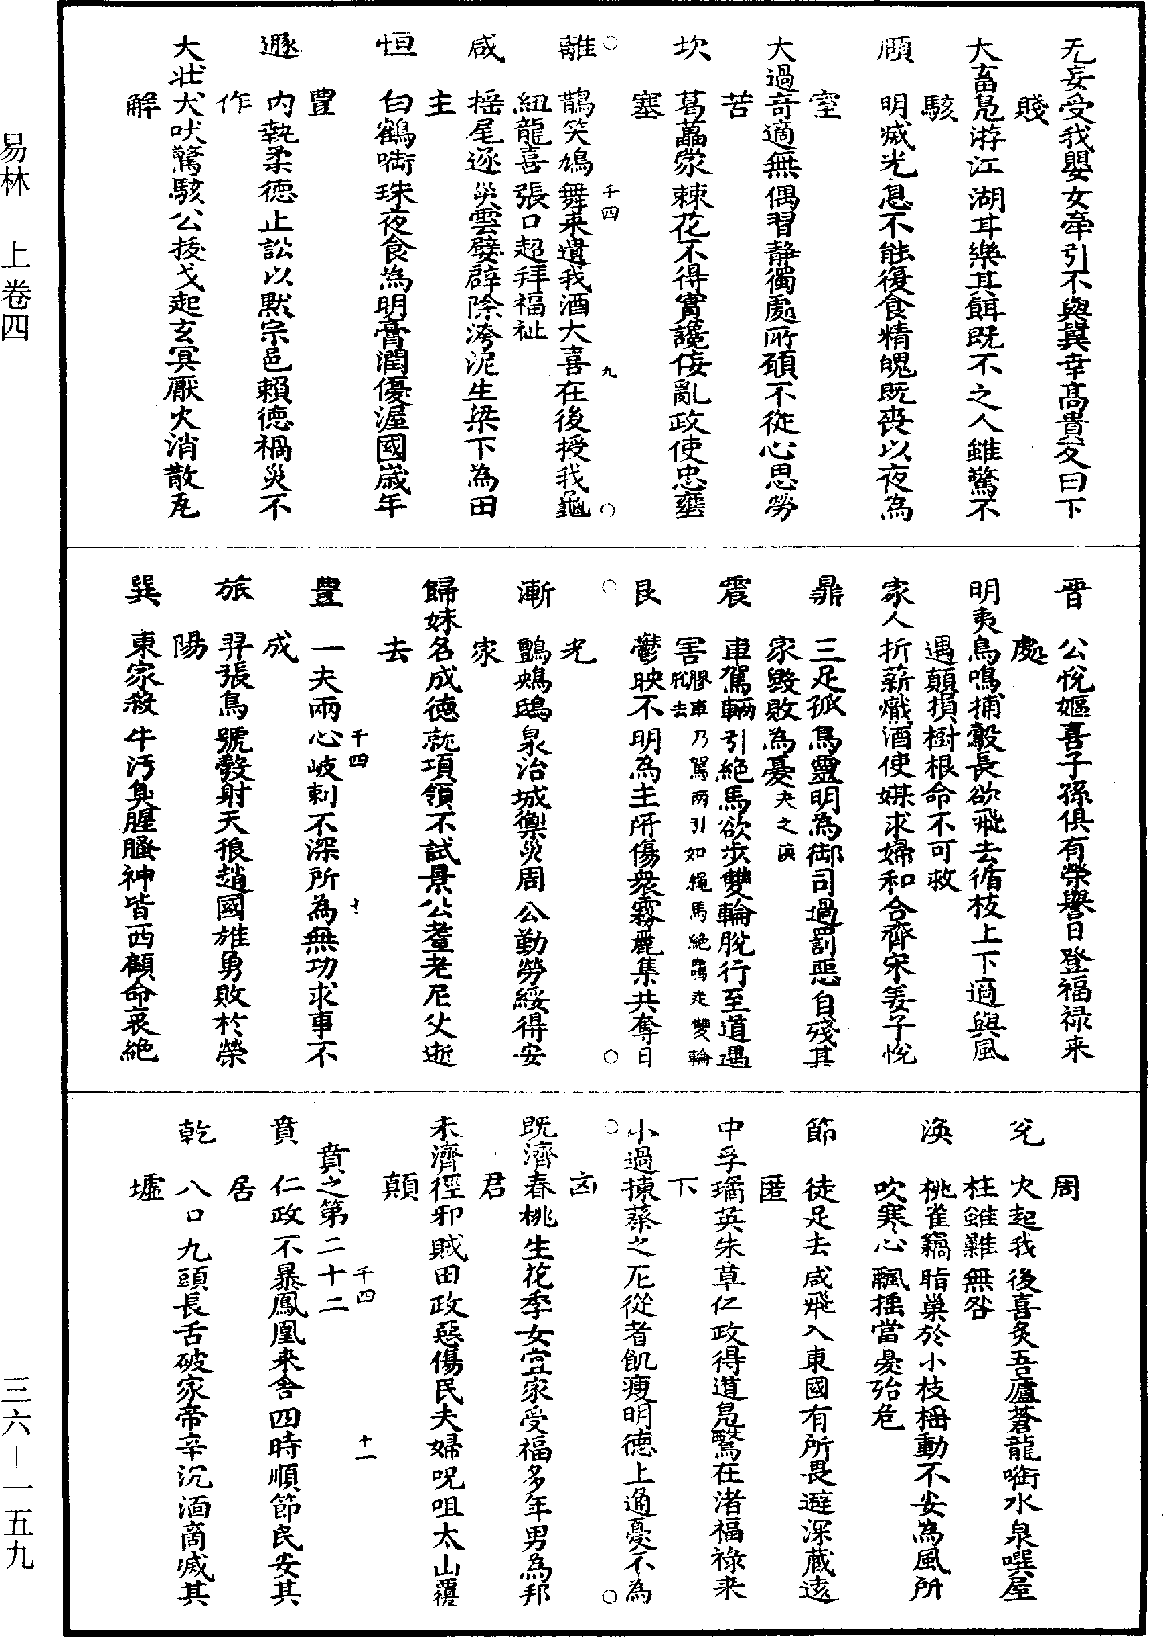 无妄受我嬰女牽引不與冀幸髙貴反曰下
賤
大畜鳬游江湖耳樂其餌既不之人雖驚不
駭
頤　明滅光息不能復食精魄既喪以夜為
室
大過奇適無偶習靜獨處所碩不從心思勞
苦
坎　葛藟蒙棘花不得實讒佞亂政使忠壅
塞
離　鵲笑鳩舞来遺我酒大喜在後授我龜
紐龍喜張口超拜福祉
咸　揺尾逐災雲孽辟除洿泥生梁下為田
主
恒　白鶴啣珠夜食為明膏潤優渥國歳年
豊
遯　内執柔徳止訟以黙宗邑賴徳禍災不
作
大壮犬吠驚駭公援戈起玄冥厭火消散瓦
解
千四
九
晋　公悦嫗喜子孫俱有榮譽日登福禄来
處
明夷鳥鳴捕鷇長欲飛去循枝上下適與風
遇顛損樹根命不可救
家人折薪熾酒使媒求婦和合齊宋姜子悦
鼎　三足孤鳥靈明為御司過罰惡自殘其
家毁敗為憂
震　車駕輛引絶馬欲步雙輪脱行至道遇
害
艮　鬱映不明為主所傷衆霧叢集共奪日
光
漸　鸝鴂鴟梟治城禦災周公勤勞綏得安
求
歸妹名成徳就項領不試景公耋老尼父逝
去
豊　一夫兩心岐刺不深所為無功求事不
成
旅　羿張烏號彀射天狼趙國雄勇敗於榮
陽
巽　東家殺牛汚臭腥臊神皆西顧命衰絶
千四
十
周
兌　火起我後喜炙吾廬蒼龍啣水泉噀屋
柱雖難無咎
渙　桃雀竊脂巢於小枝揺動不安為風所
吹寒心飄揺當憂殆危
節　徒足去咸飛入東國有所畏避深蔵逺
匿
中孚璚英朱草仁政得道鳬鷖在渚福禄来
下
小過揀蔡之戹從者飢瘦明徳上通憂不為
凶
既濟春桃生花季女宜家受福多年男為邦
君
未濟徑邪賊田政惡傷民夫婦呪咀太山覆
顛
賁之第二十二
賁　仁政不暴鳳凰来舍四時順節民安其
居
乾　八口九頭長舌破家帝辛沉湎商滅其
墟
千四
十一
易林　上卷四
三六－一五九